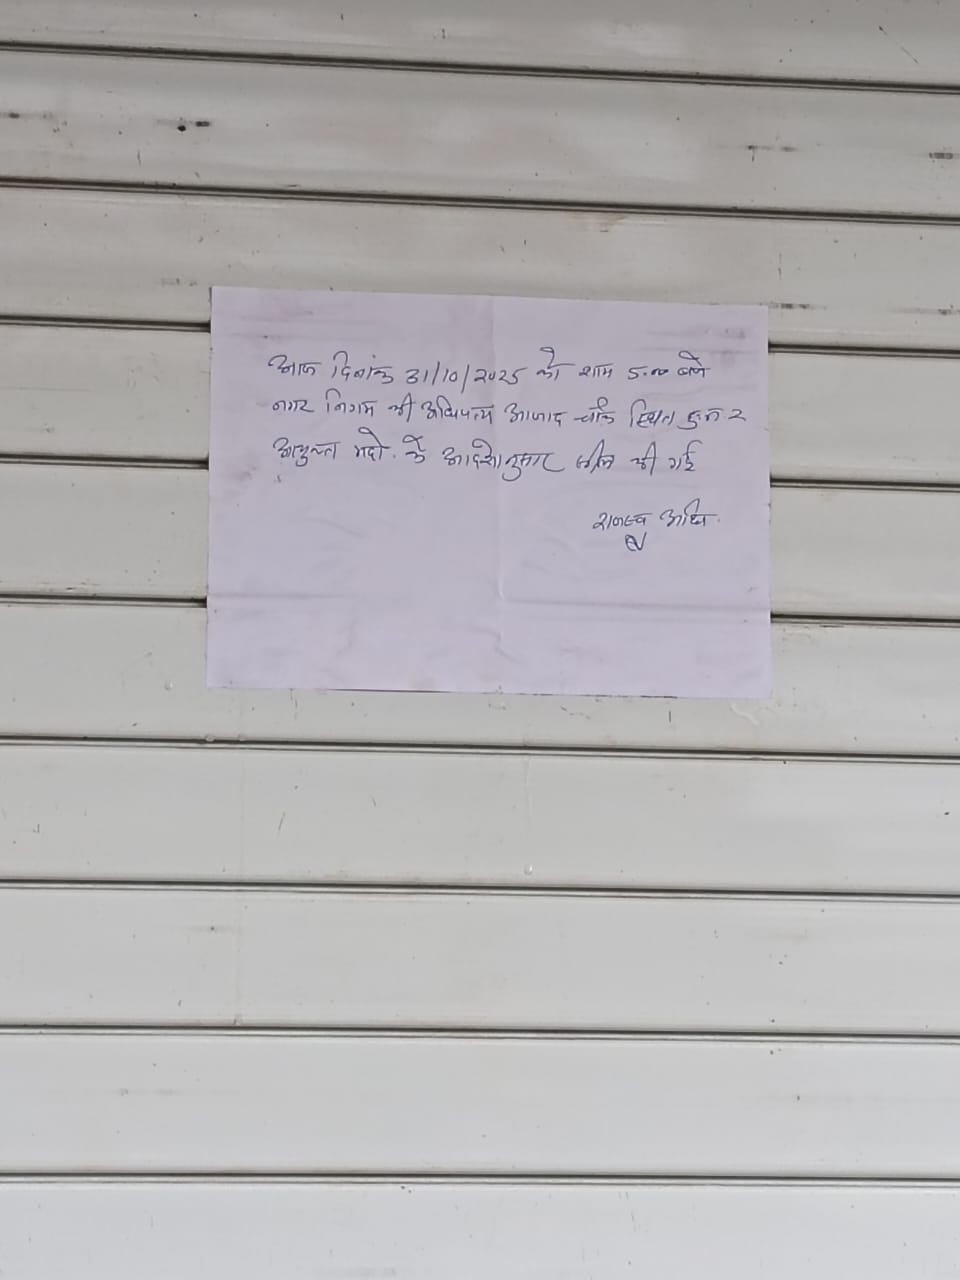 आज दिनांक 31/10/2025 को शाम 5.00 बजे
नगर निगम की आधिपत्य आजाद चौक स्थित दु.न 2
आयुक्त महो. के आदेशानुसार सील की गई
राजस्व अधि.